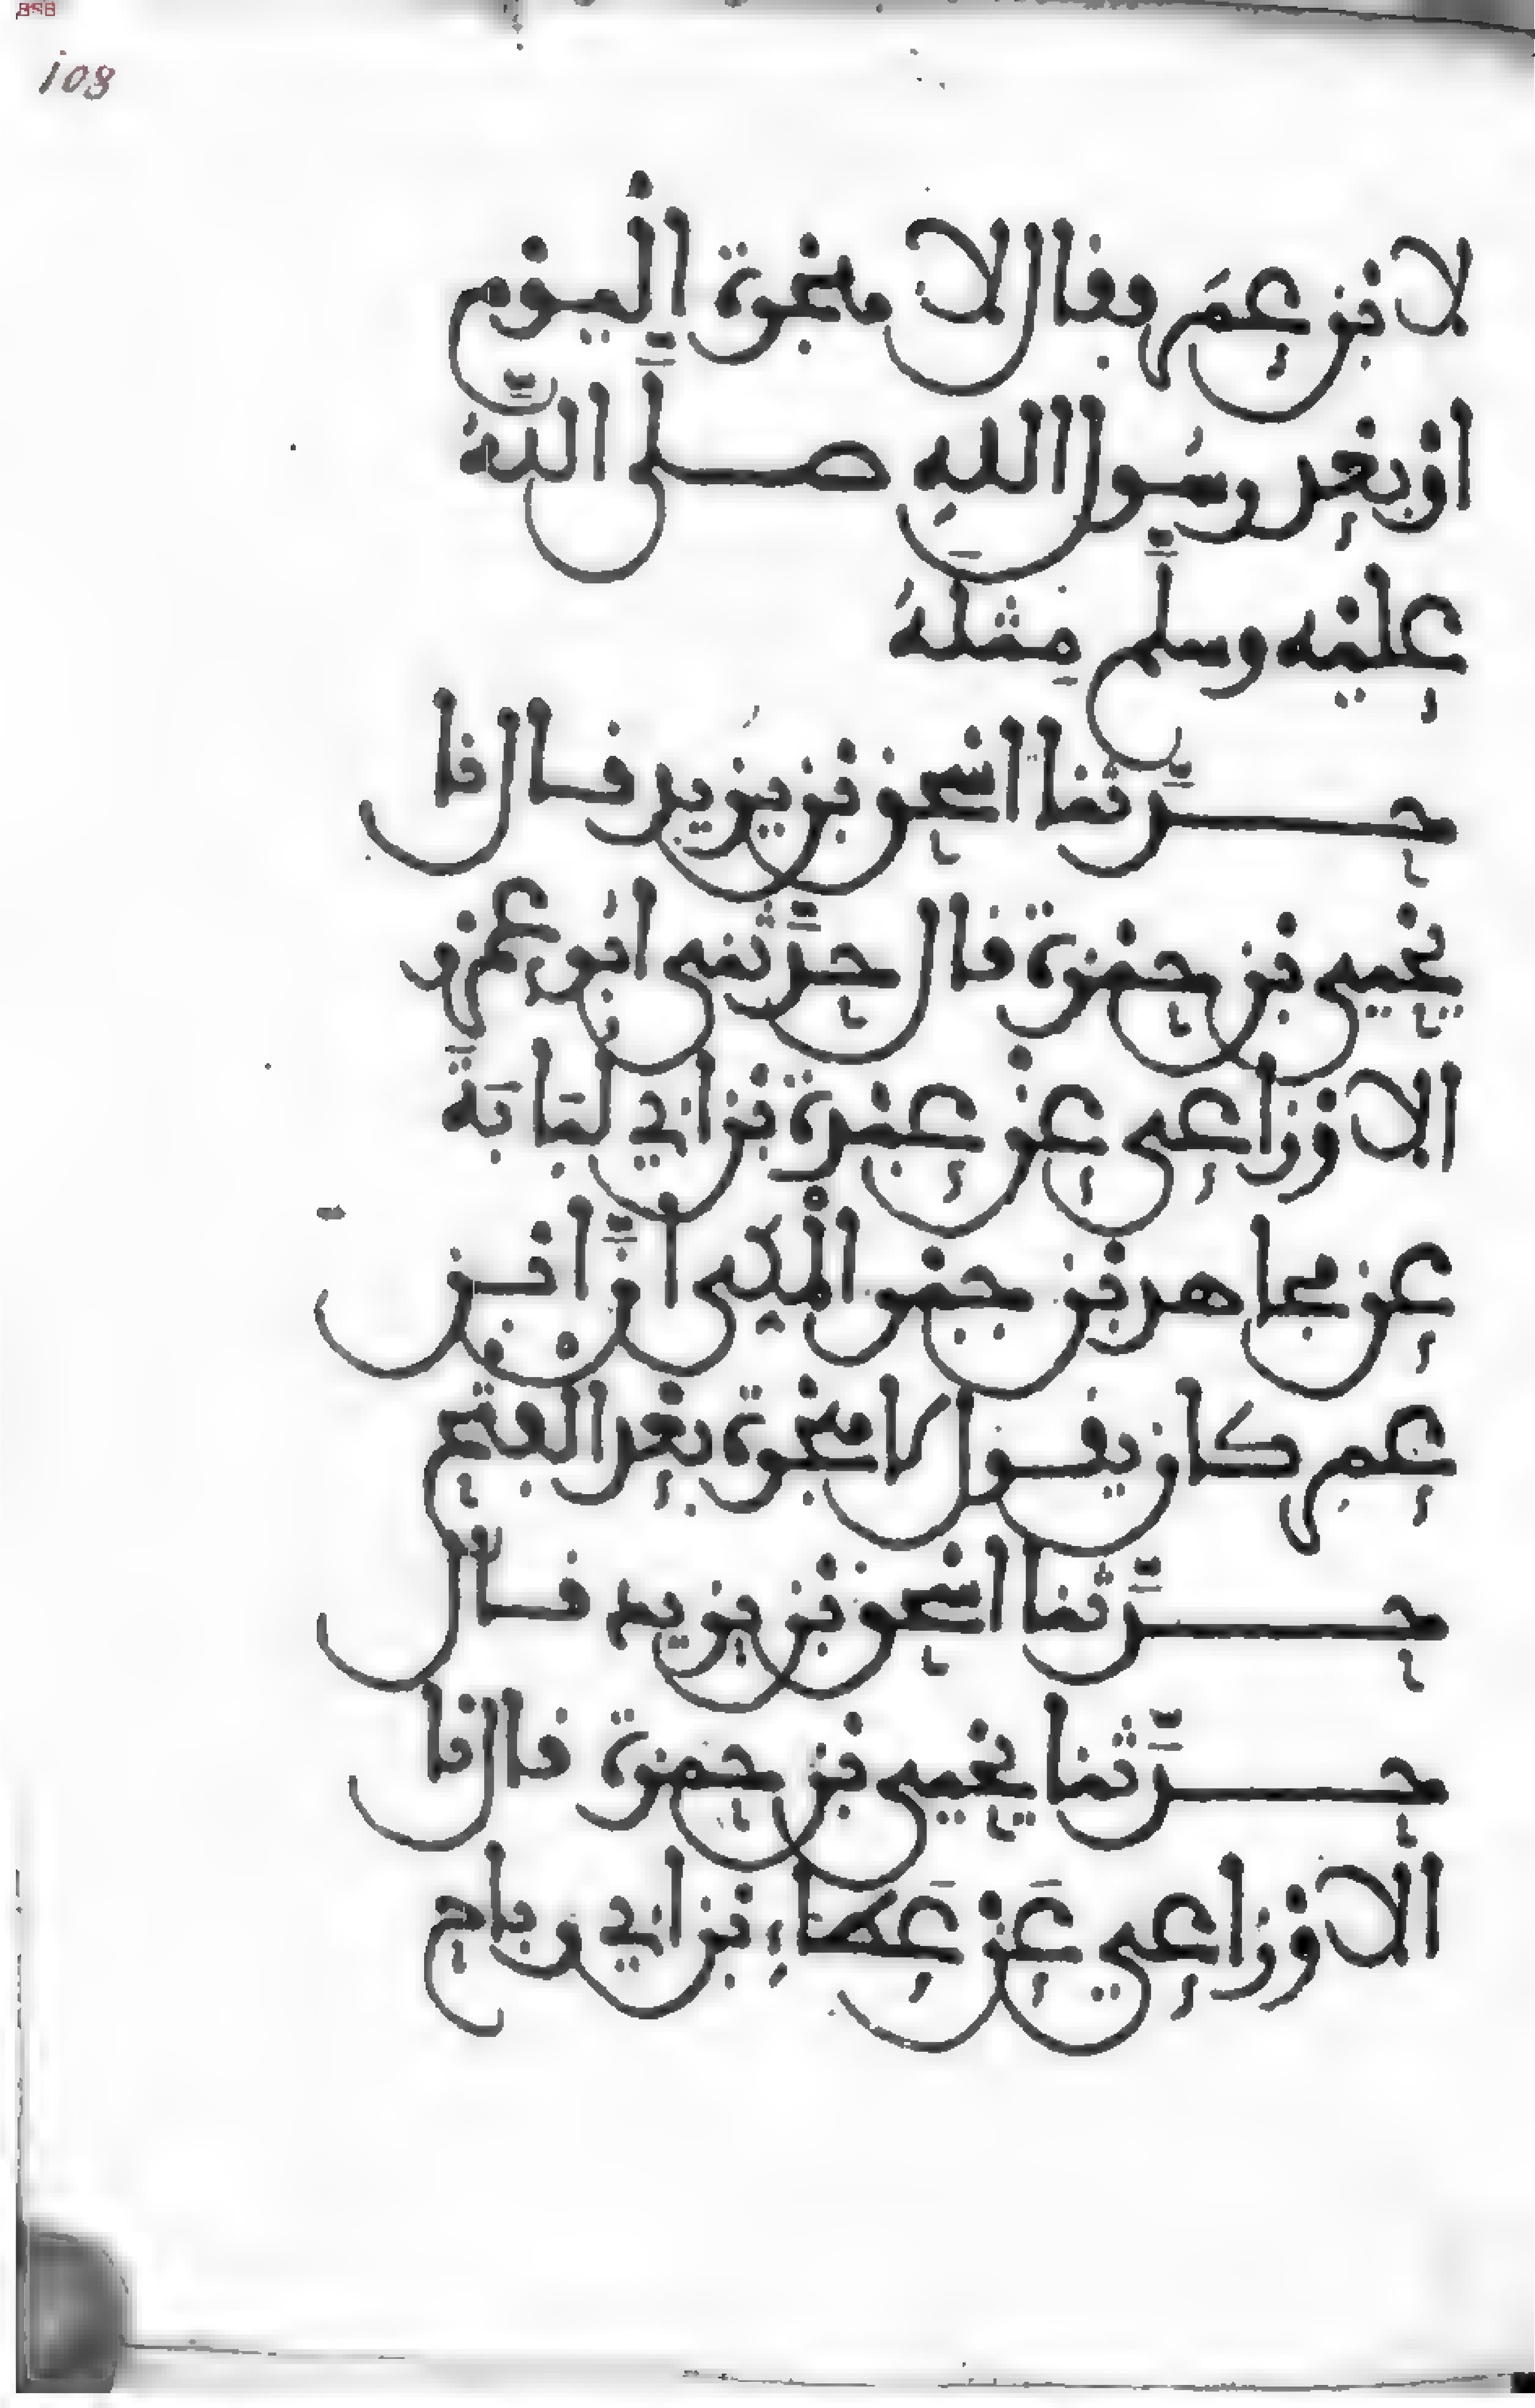 108
لابن عمر فقال لا هجرة اليوم
او بعد رسول الله صلى الله
عليه وسلم مثله
حدثنا اسحق بن يزيد قال نا
يحيى بن حمزة قال حدثني ابو عمرو
الاوزاعي عن عبدة بن ابي لبابة
عن مجاهد بن جبر المكي ان ابن
عمر كان يقول لا هجرة بعد الفتح
حدثنا اسحق بن يزيد قال
حدثنا يحيى بن حمزة قال نا
الاوزاعي عن عطاء بن ابي رباح